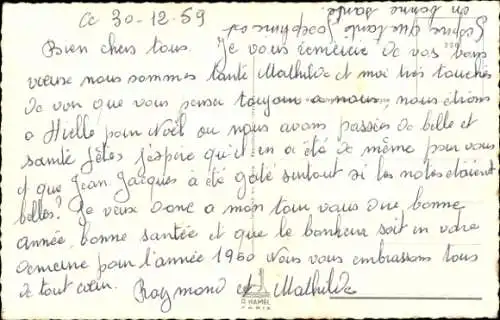 Ce 30-12-59
Bien chers tous. Je vous remercie de vos bons
vœuse nous sommes tante Mathilde et moi très touchés
de von que vous penser toujours a nous nous étions
a Hielle pour Noël ou nous avons passées de belle et
santé fêtes j'espère qu'il en a été de même pour vous
et que Jean Jacques à été gâté surtout si les notes étaient
belles? Je veux donc a mon tour vous une bonne
année, bonne santée et que le bonheur soit en votre
demeure pour l'année 1960 Nous vous embrassons tous
de tout cœur. Raymond et Mathilde
J'espère que tante Josephine est
en bonne santé.
R. HAMEL
PARIS